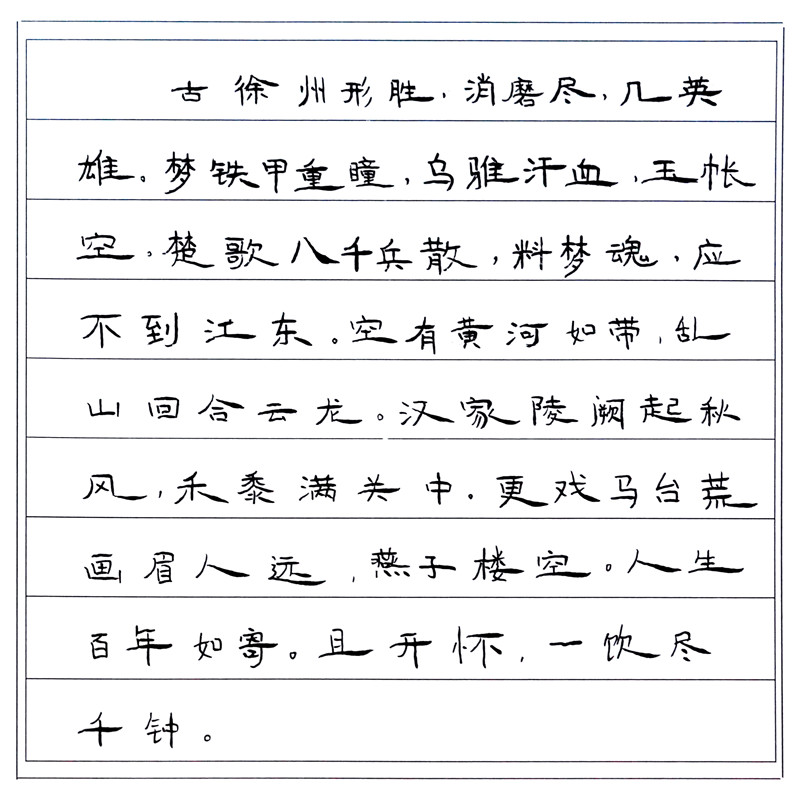 古徐州形胜，消磨尽，几英
雄。梦铁甲重瞳，乌骓汗血，玉帐
空。楚歌八千兵散，料梦魂，应
不到江东。空有黄河如带，乱
山回合云龙。汉家陵阙起秋
风，禾黍满关中。更戏马台荒
画眉人远，燕子楼空。人生
百年如寄。且开怀，一饮尽
千钟。